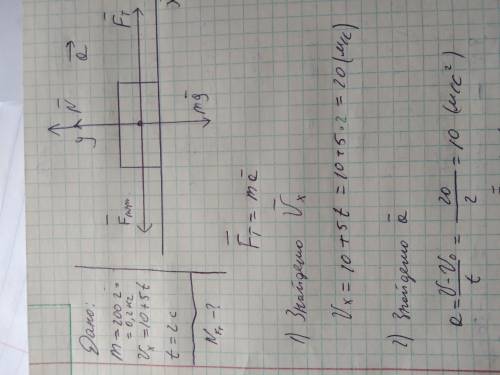 Дано:
m = 200 г
= 0,2 кг
Vx = 10 + 5t
t = 2 c
y
N
a
Fт
mg
x
Fт = ma
1) Знайдемо Vx
Vx = 10 + 5t = 10 + 5·2 = 20 (м/с)
2) Знайдемо a
a = V - V₀ / t = 20 / 2 = 10 (м/с²)